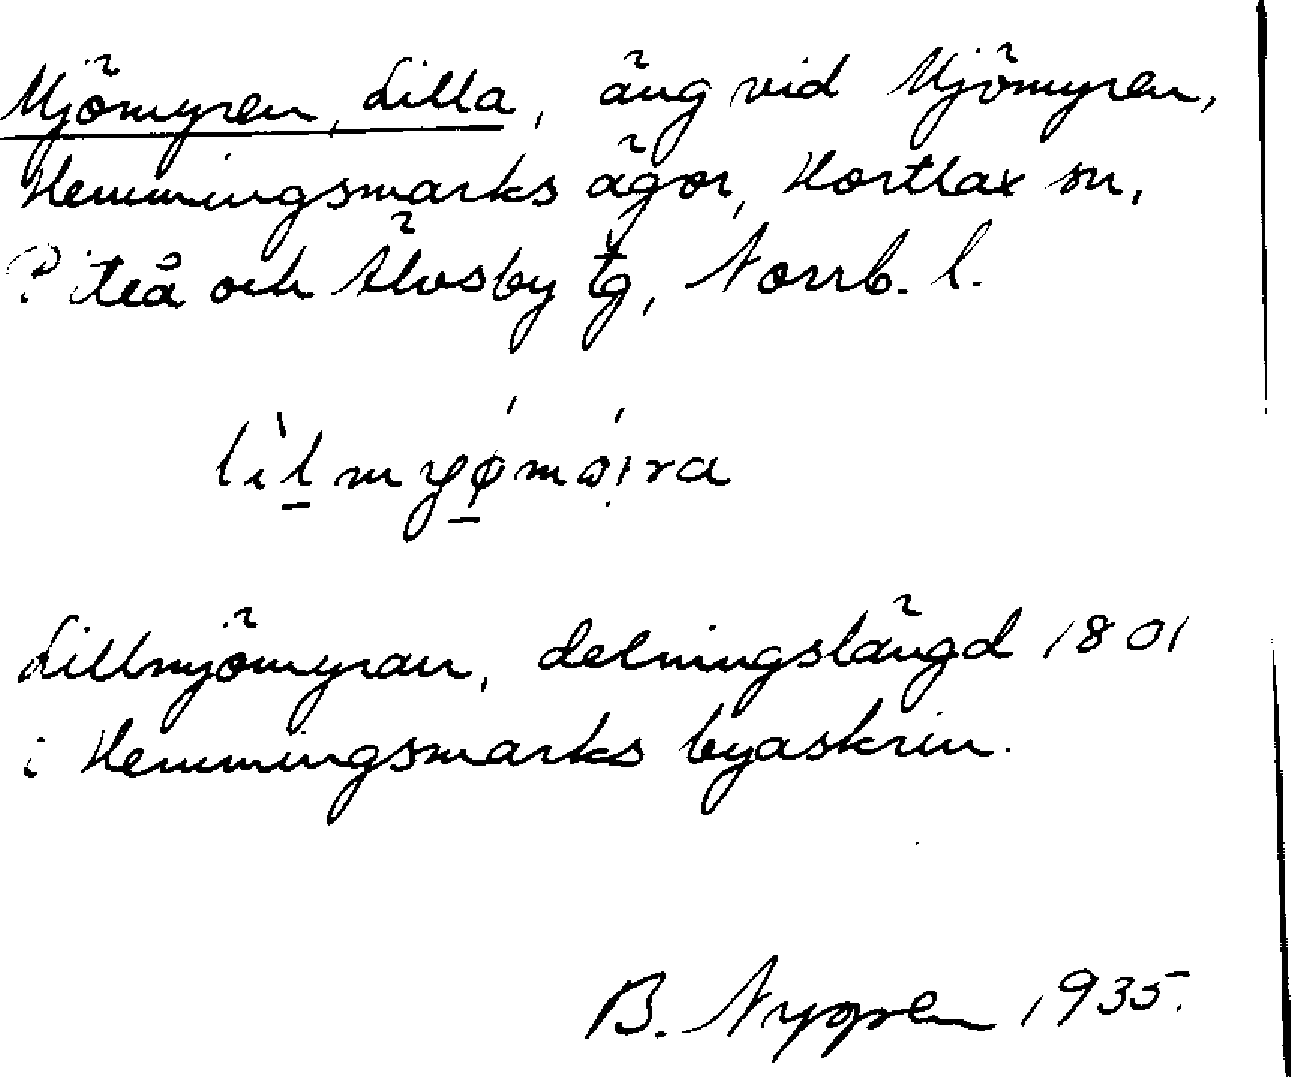 Mjömyren, Lilla, äng vid Mjömyren,
Hemmingsmarks ägor, Hortlax sn,
Piteå och Älvsby tg, Norrb. l.
Lillmjömyran, delningslängd 1801
i Hemmingsmarks byaskrin.
B. Nygren 1935.